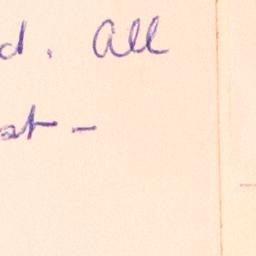 d. All
at -